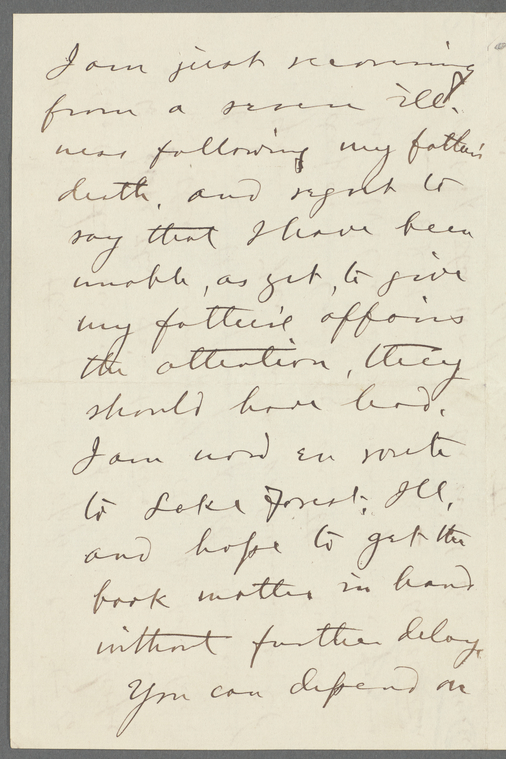 I am just recovering
from a severe ill-
ness following my father's
death, and regret to
say that I have been
unable, as yet, to give
my father's affairs
the attention, they
should have had.
I am now en route
to Lake Forest, Ill,
and hope to get the
book matter in hand
without further delay.
You can depend on